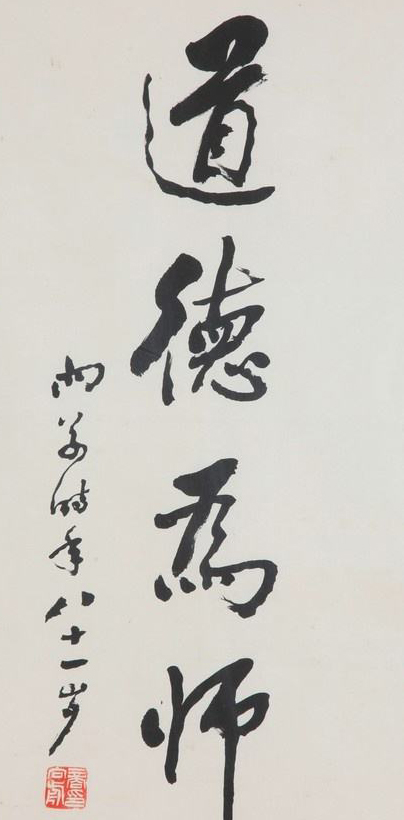 道德為師
時年八十一岁